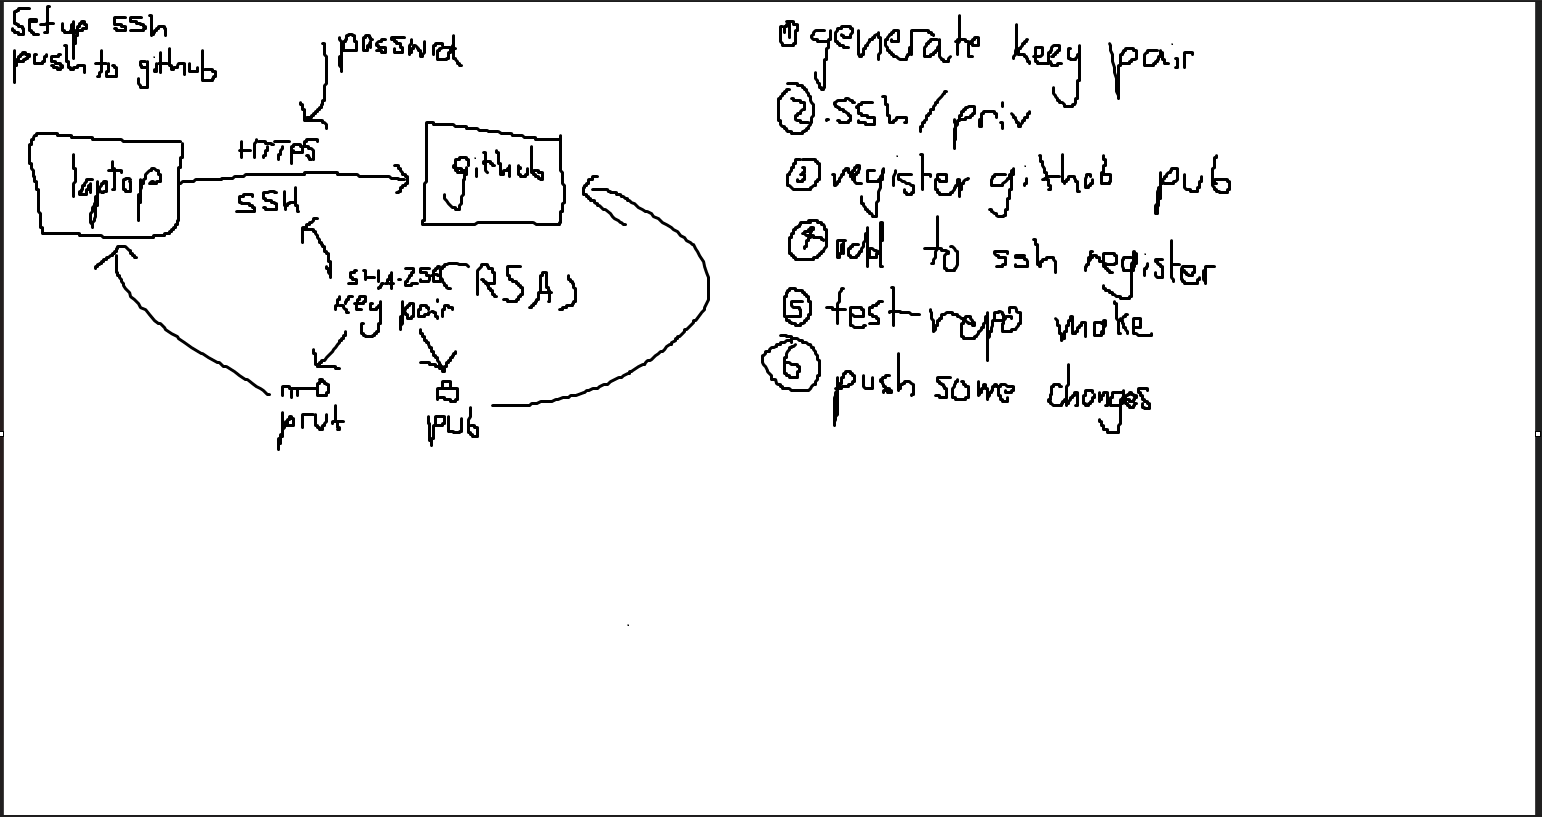 Setup ssh
push to github
passwrd
HTTPS
laptop
github
SSH
SHA-256 (RSA)
key pair
prvt
pub
① generate keey pair
② .ssh/priv
③ register github pub
④ add to ssh register
⑤ test-repo make
⑥ push some changes